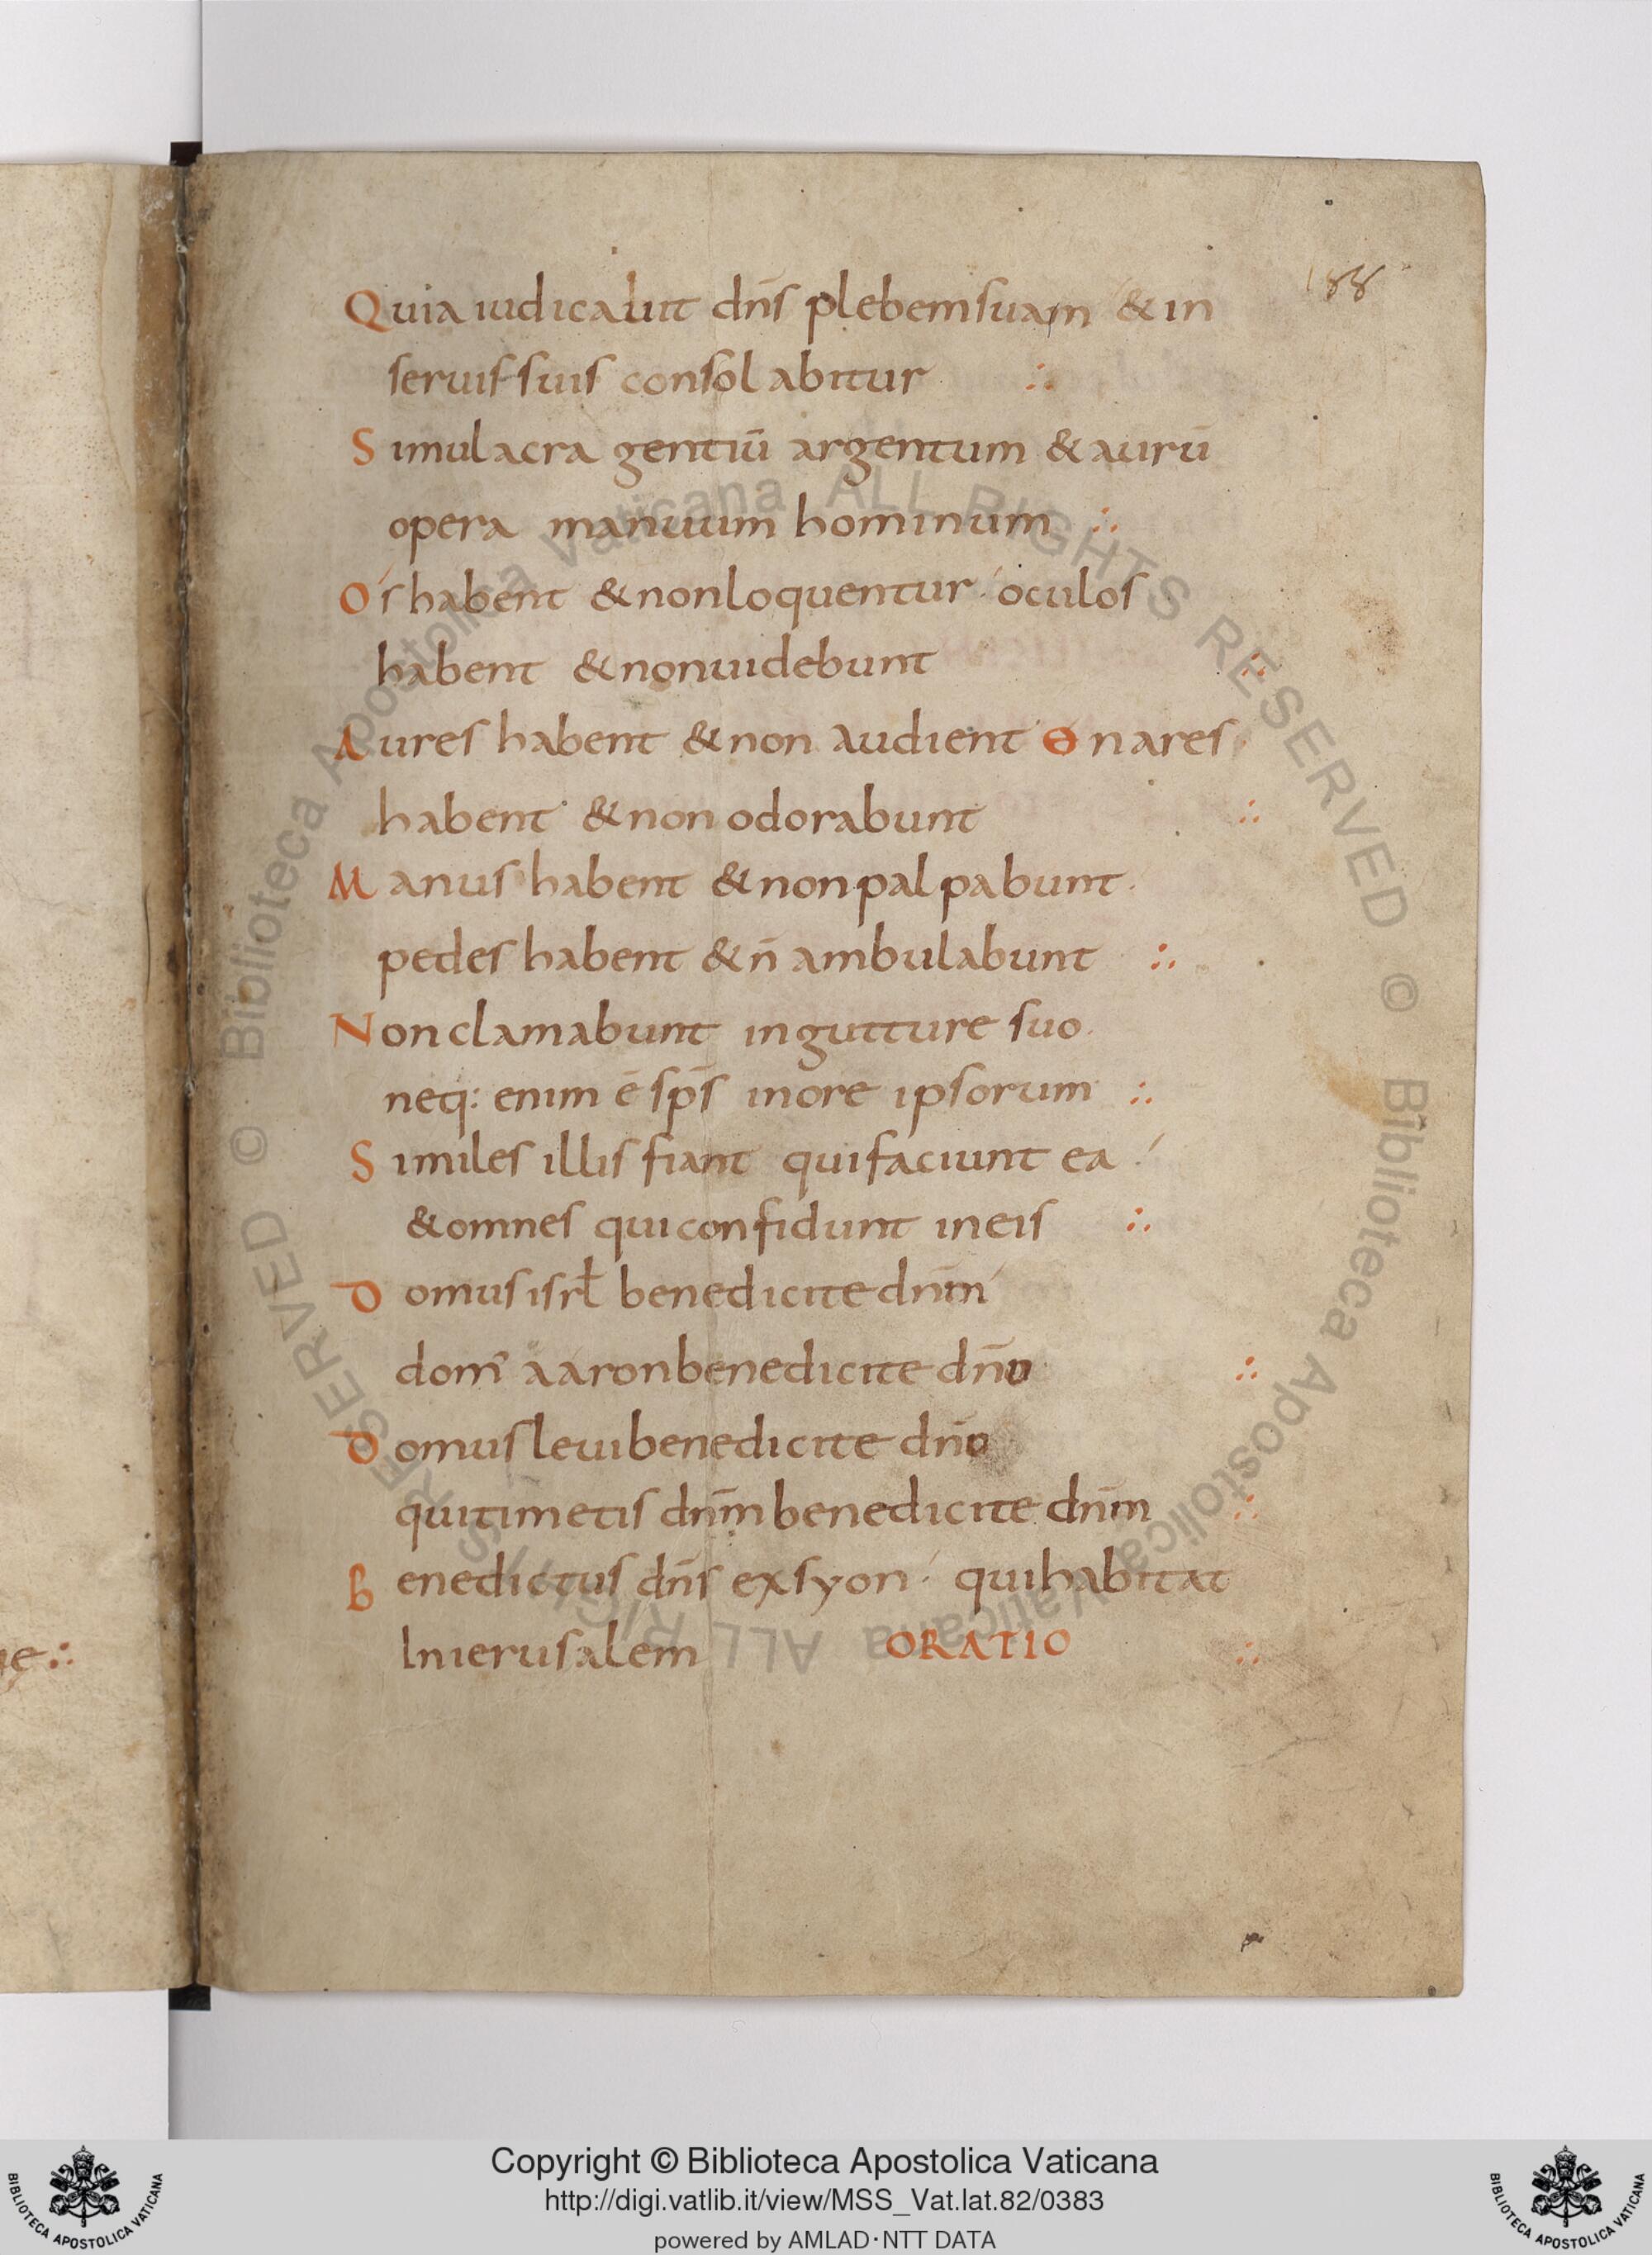 188
Quia iudicabit dn̄s plebem suam & in
seruis suis consolabitur ∴
Simulacra gentiū argentum & aurū
opera manuum hominum ∴
Os habent & non loquentur oculos
habent & non uidebunt ∴
Aures habent & non audient Θ nares
habent & non odorabunt ∴
Manus habent & non palpabunt.
pedes habent & n̄ ambulabunt ∴
Non clamabunt in gutture suo.
neq: enim ē sp̄s in ore ipsorum ∴
Similes illis fiant qui faciunt ea
& omnes qui confidunt in eis ∴
Domus isrł benedicite dn̄m
dom' aaron benedicite dn̄o ∴
Domus leui benedicite dn̄o
qui timetis dn̄m benedicite dn̄m ∴
Benedictus dn̄s ex syon qui habitat
In ierusalem ORATIO ∴
ne ∴
© Biblioteca Apostolica Vaticana ALL RIGHTS RESERVED
© Biblioteca Apostolica Vaticana ALL RIGHTS RESERVED
Copyright © Biblioteca Apostolica Vaticana
http://digi.vatlib.it/view/MSS_Vat.lat.82/0383
powered by AMLAD·NTT DATA
BIBLIOTECA APOSTOLICA VATICANA
BIBLIOTECA APOSTOLICA VATICANA